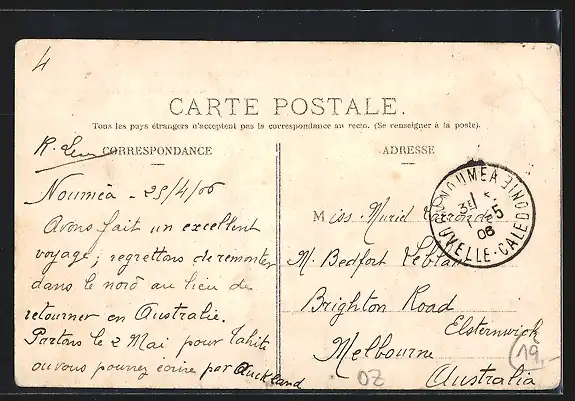 4
CARTE POSTALE.
Tous les pays étrangers n'acceptent pas la correspondance au recto. (Se renseigner à la poste).
CORRESPONDANCE
ADRESSE
Nouméa - 25/4/06
Avons fait un excellent
voyage; regrettons de remonter
dans le nord au lieu de
retourner en Australie.
Partons le 2 Mai pour Tahiti
ou vous pouvez écrire par Auckland
NOUMEA
UVELLE-CALEDONIE
1
06
Miss Muriel
M. Bedfort
Brighton Road
Elsternwick
Melbourne
Australia
OZ
19.-